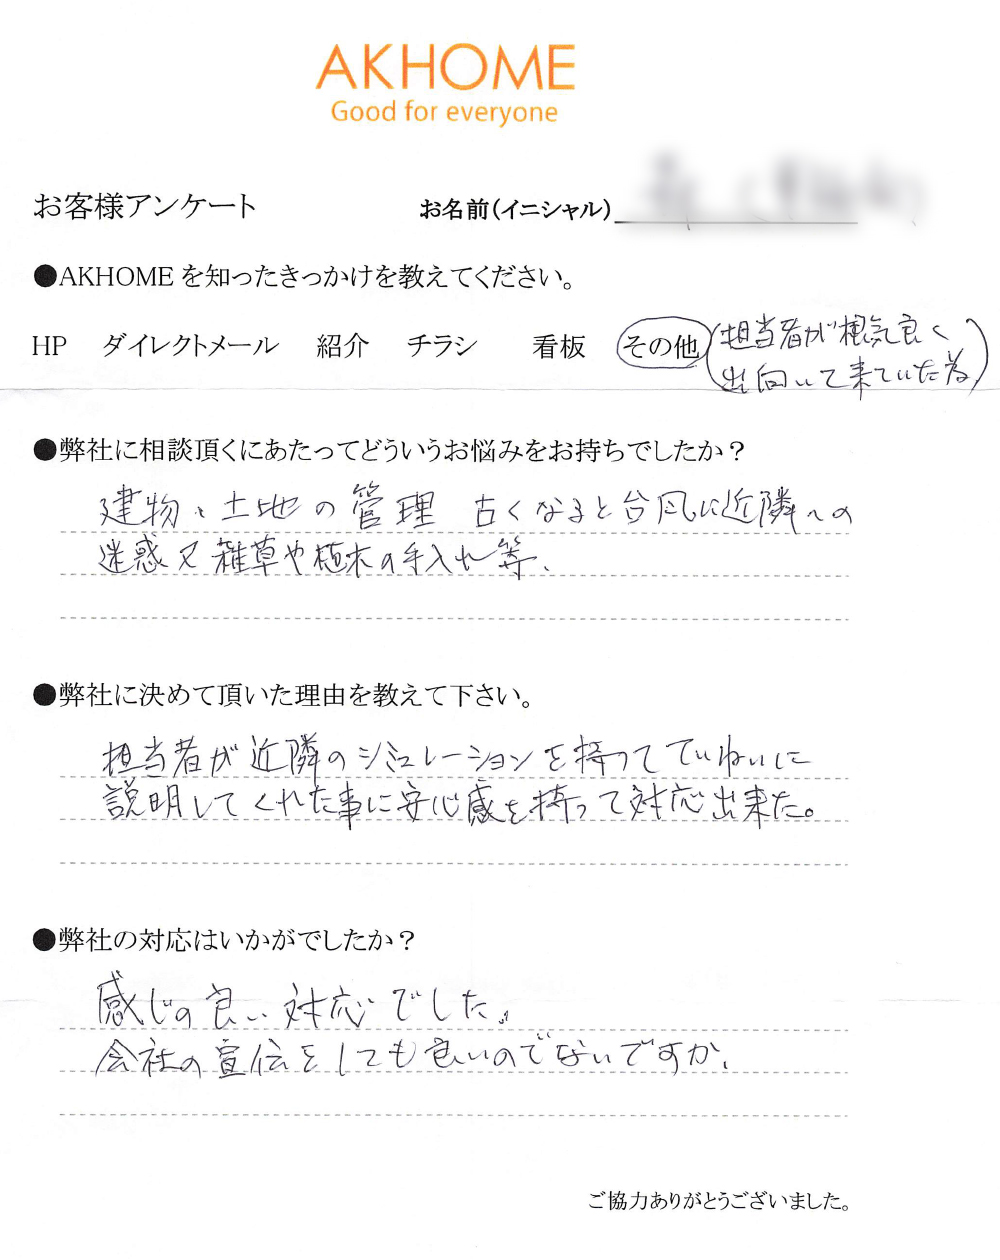 AKHOME
Good for everyone
お客様アンケート お名前(イニシャル)
●AKHOMEを知ったきっかけを教えてください。
HP ダイレクトメール 紹介 チラシ 看板 その他 (担当者が根気良く
出向いて来ていた為)
●弊社に相談頂くにあたってどういうお悩みをお持ちでしたか？
建物、土地の管理 古くなると台風に近隣への
迷惑又雑草や植木の手入れ等、
●弊社に決めて頂いた理由を教えて下さい。
担当者が近隣のシミュレーションを持ってていねいに
説明してくれた事に安心感を持って対応出来た。
●弊社の対応はいかがでしたか？
感じの良い対応でした。
会社の宣伝をしても良いのでないですか、
ご協力ありがとうございました。